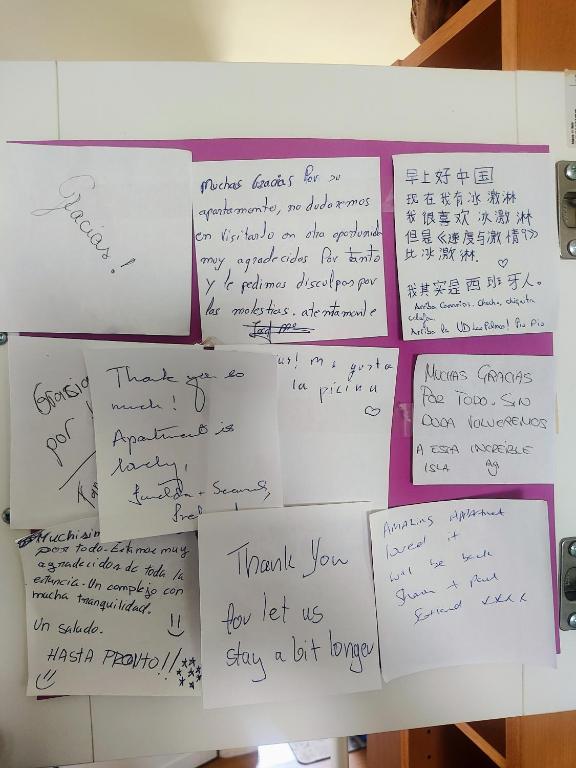 Gracias!
Muchas Gracias Por su
apartamento, no dudaremos
en visitarlo en otra oportunidad
muy agradecidos Por tanto
y le pedimos disculpas por
las molestias. atentamente
早上好中国
现在我有冰激淋
我很喜欢冰激淋
但是《速度与激情9》
比冰激淋.
我其实是西班牙人。
Arriba Canarias. Chacho, chiquita
Arriba la UD Las Palmas! Pio Pio
Grasia
por
gusta
la picina
Thank you so
much!
Apartment is
lovely,
MUCHAS GRACIAS
POR TODO. SIN
DUDA VOLVEREMOS
A ESTA INCREÍBLE
ISLA
Muchisim
por todo. Estamos muy
agradecidos de toda la
estancia. Un complejo con
mucha tranquilidad.
Un saludo.
HASTA PRONTO!!
Thank You
for let us
stay a bit longer
AMAZING Apartment
loved it
will be back
Sharon + Paul
xxxx